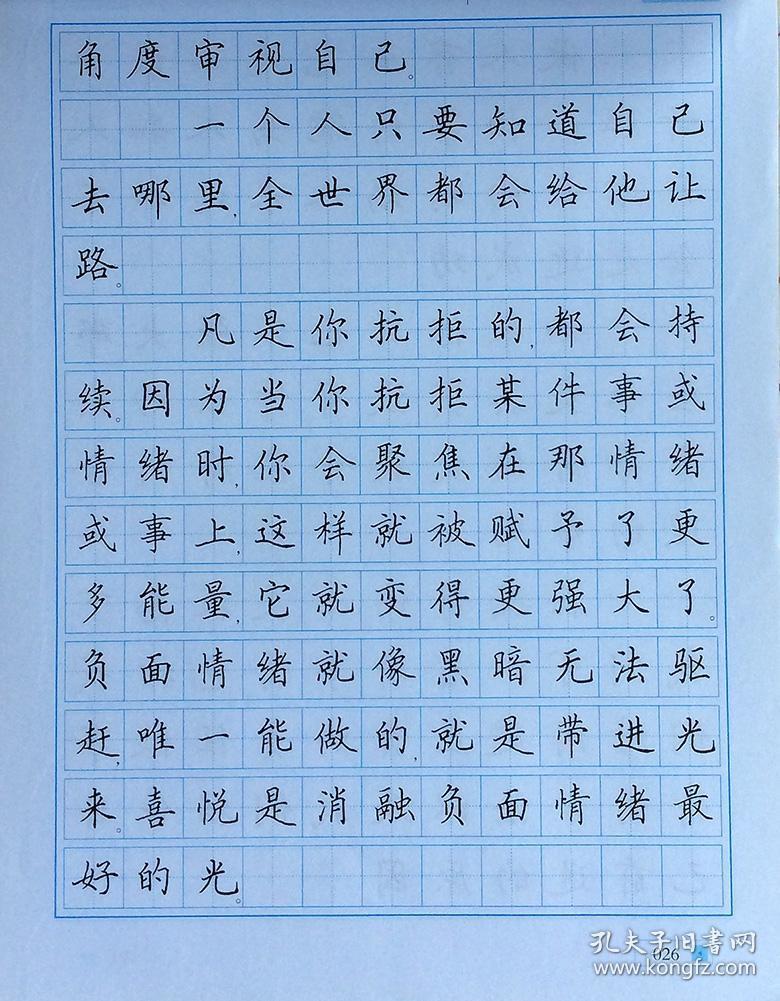 角度审视自己。
一个人只要知道自己
去哪里,全世界都会给他让
路。
凡是你抗拒的,都会持
续。因为当你抗拒某件事或
情绪时,你会聚焦在那情绪
或事上,这样就被赋予了更
多能量,它就变得更强大了。
负面情绪就像黑暗无法驱
赶,唯一能做的,就是带进光
来。喜悦是消融负面情绪最
好的光。
026
孔夫子旧书网
www.kongfz.com